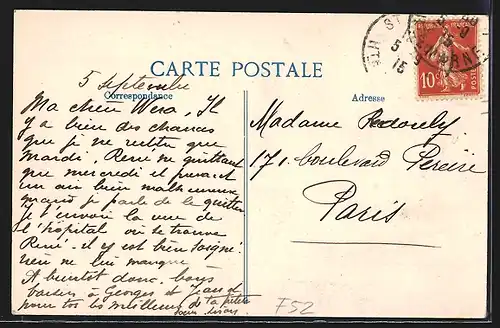 CARTE POSTALE
Correspondance
Adresse
10c
5 septembre
Ma chère Wera, Il
y a bien des chances
que je ne rentre que
Mardi, René ne quittant
que mercredi et prenant
un air bien malheureux
quand je parle de le quitter
je t'envoie la vue de
l'hôpital où se trouve
René. il y est bien soigné
rien ne lui manque
A bientôt donc, bons
baisers à Georges et Jean et
pour toi les meilleurs de ta petite
Madame
171. boulevard Pereire
Paris
F52